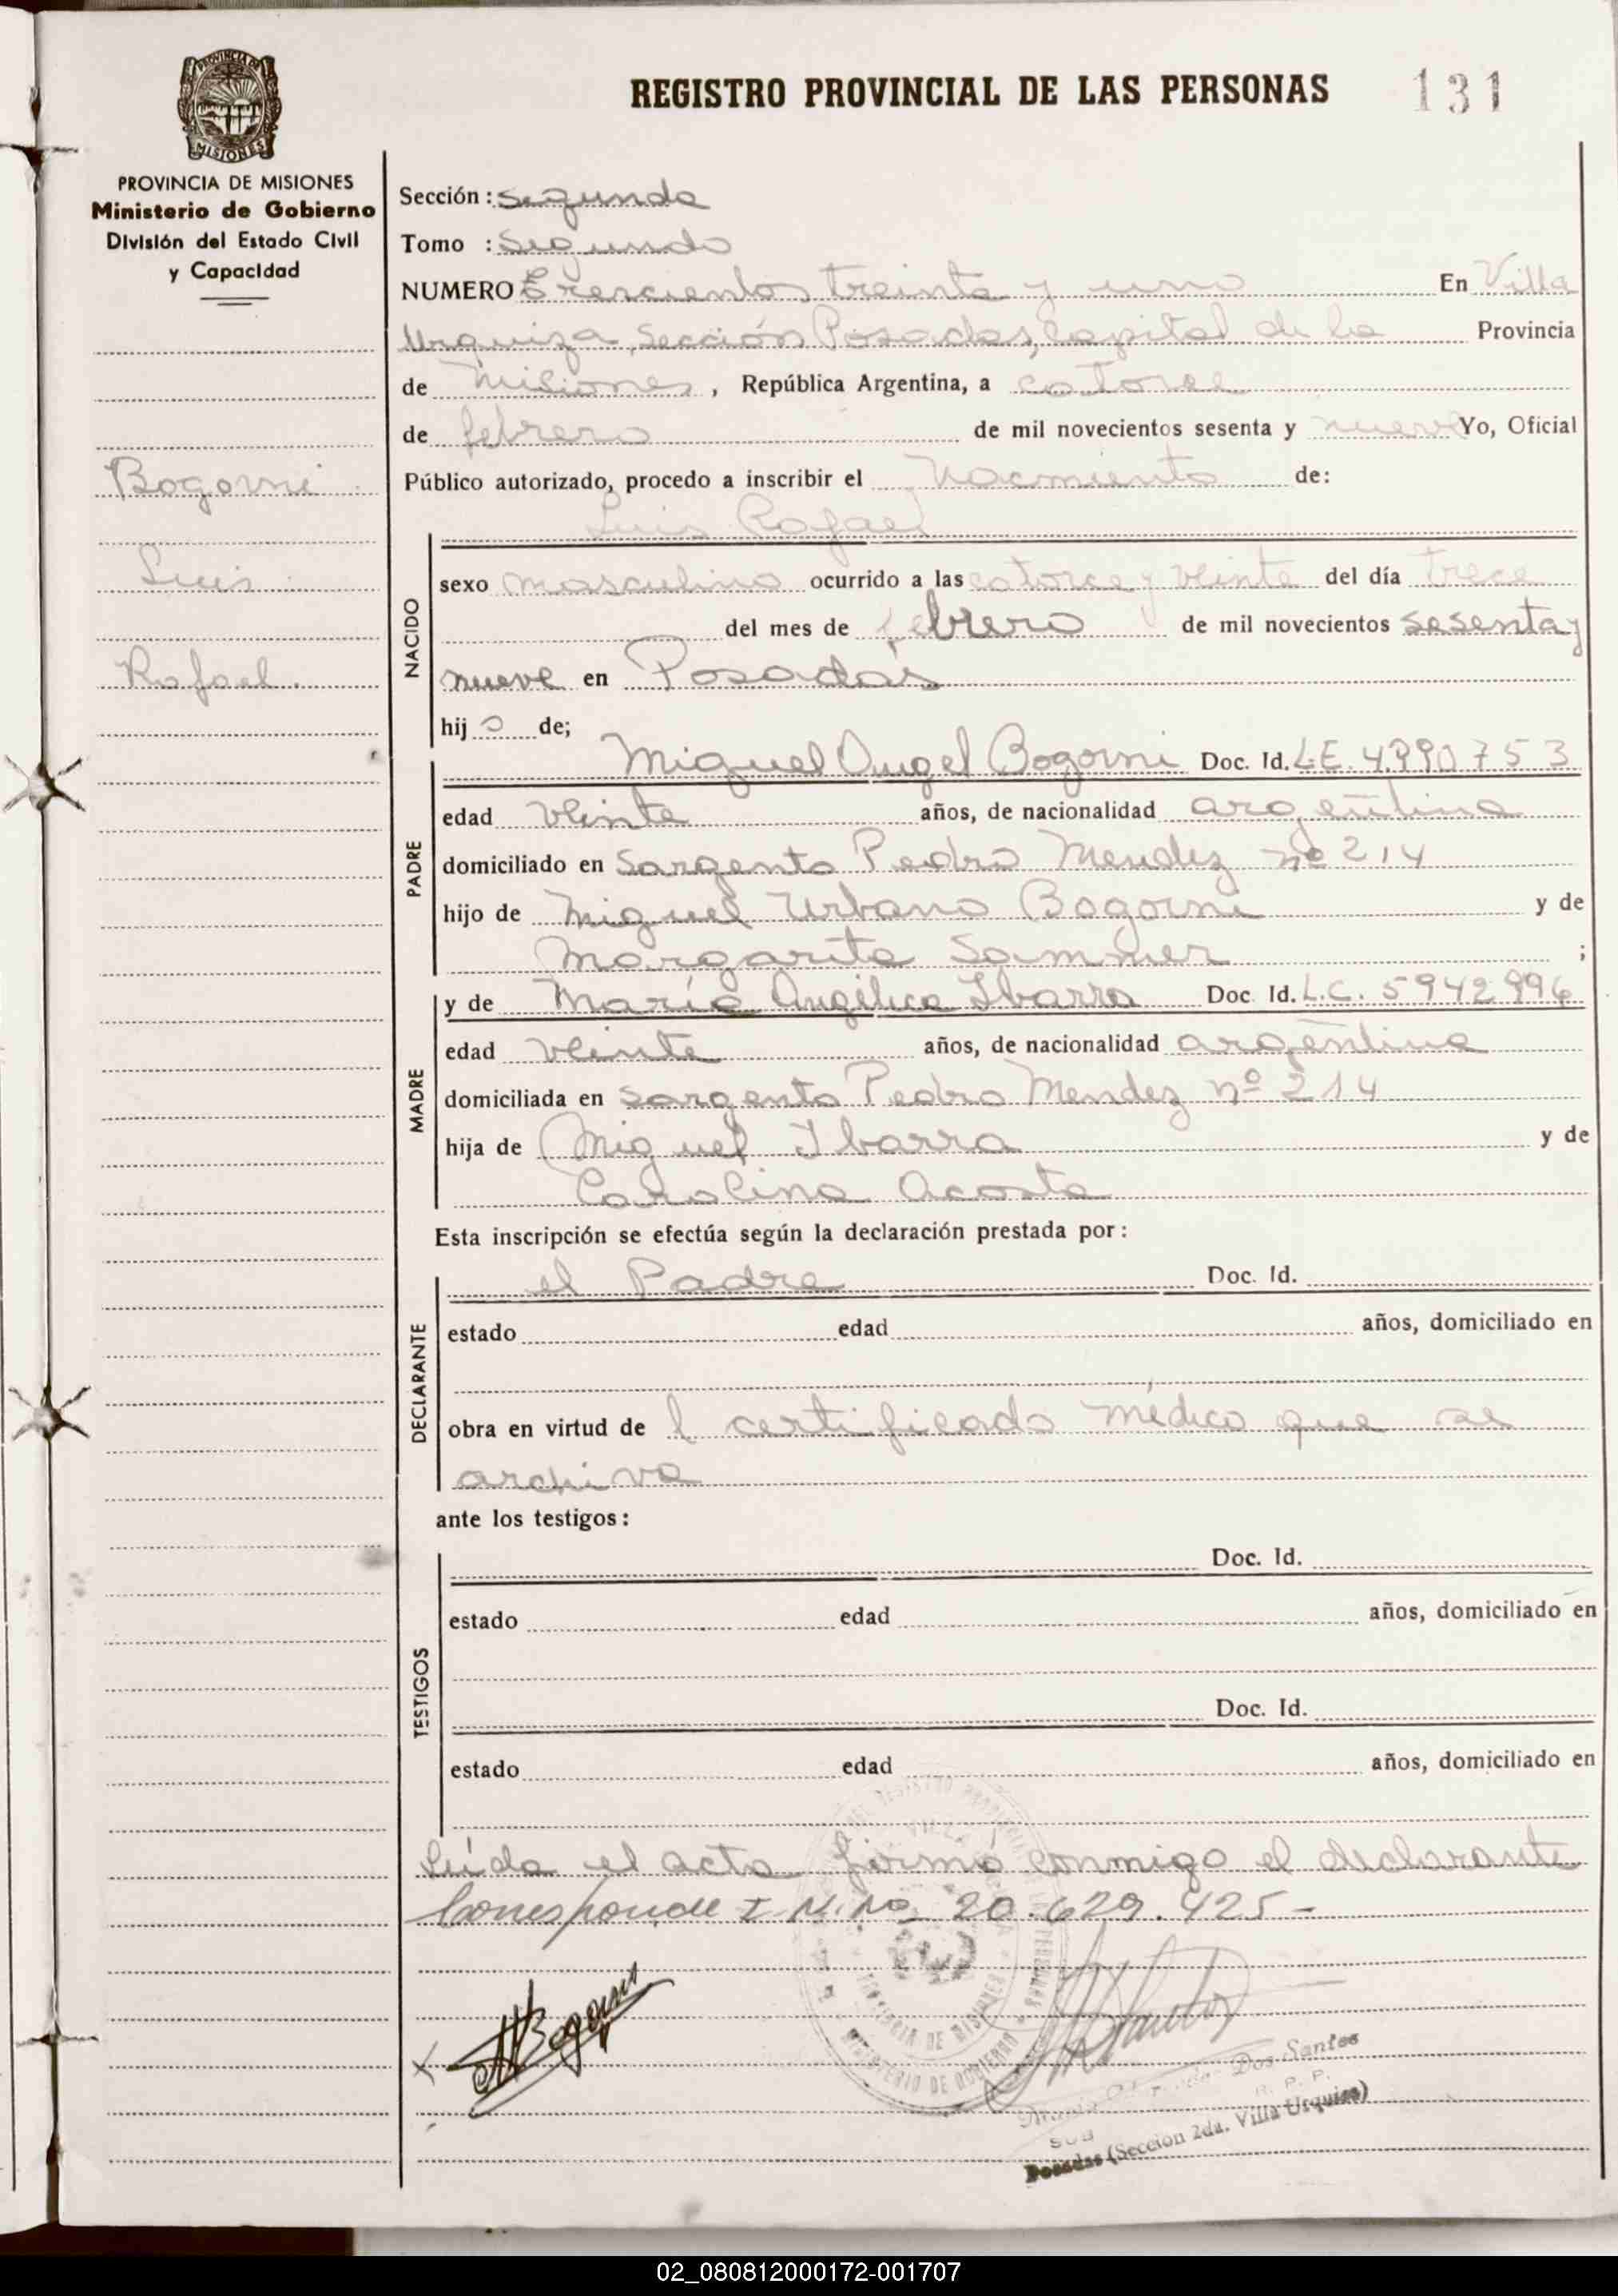 REGISTRO PROVINCIAL DE LAS PERSONAS 131
PROVINCIA DE MISIONES
MISIONES
PROVINCIA DE MISIONES
Ministerio de Gobierno
División del Estado Civil
y Capacidad
Bogorni
Luis
Rafael.
Sección : Segunda
Tomo : Segundo
NUMERO Trescientos treinta y uno En Villa
Urquiza, Sección Posadas, Capital de la Provincia
de Misiones, República Argentina, a catorce
de febrero de mil novecientos sesenta y nueve Yo, Oficial
Público autorizado, procedo a inscribir el Nacimiento de:
Luis Rafael
NACIDO
sexo masculino ocurrido a las catorce y veinte del día trece
del mes de febrero de mil novecientos sesenta y
nueve en Posadas
hij o de;
PADRE
Miguel Angel Bogorni Doc. Id. L.E. 4990753
edad veinte años, de nacionalidad argentina
domiciliado en Sargento Pedro Mendez nº 214
hijo de Miguel Urbano Bogorni y de
Margarita Sammer ;
MADRE
y de María Angélica Ibarra Doc. Id. L.C. 5942996
edad veinte años, de nacionalidad argentina
domiciliada en Sargento Pedro Mendez nº 214
hija de Miguel Ibarra y de
Carolina Acosta
Esta inscripción se efectúa según la declaración prestada por :
DECLARANTE
el Padre Doc. Id.
estado edad años, domiciliado en
obra en virtud de l certificado médico que se
archiva
ante los testigos :
TESTIGOS
Doc. Id.
estado edad años, domiciliado en
Doc. Id.
estado edad años, domiciliado en
Leída el acta firmó conmigo el declarante
Corresponde I. N. No 20.629.425 -
Bogorni
Dos Santos
R. P. P.
Posadas (Sección 2da. Villa Urquiza)
02_080812000172-001707